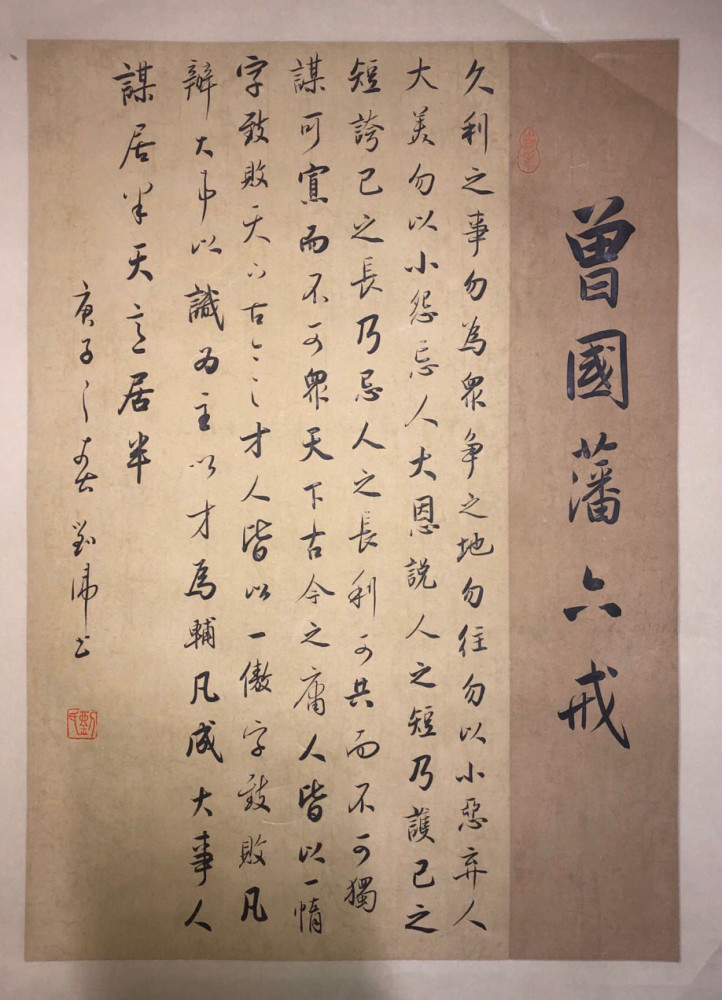 曾國藩六戒
久利之事勿為眾争之地勿往勿以小惡弃人
大美勿以小怨忘人大恩説人之短乃護己之
短誇己之長乃忌人之長利可共而不可獨
謀可寡而不可眾天下古今之庸人皆以一惰
字致敗天下古今之才人皆以一傲字致敗凡
辦大事以識為主以才為輔凡成大事人
謀居半天意居半
庚子之春劉沸书